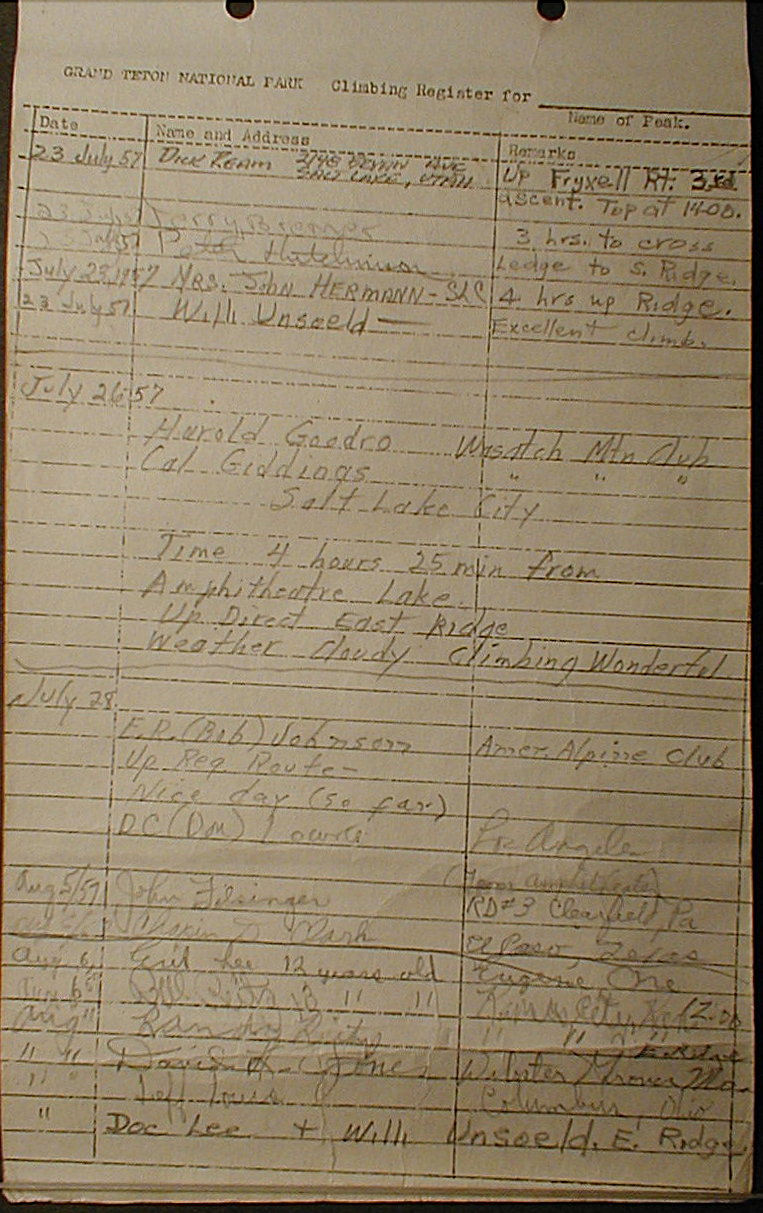 GRAND TETON NATIONAL PARK Climbing Register for
Name of Peak.
Date Name and Address Remarks
23 July 57 DICK REAM 2148 AVE Up Fryxell Rt. 3rd
SALT LAKE, UTAH ascent. Top at 1400.
Terry 3 hrs. to cross
Pete Hutchinson Ledge to S. Ridge.
July 23, 1957 MRS. JOHN HERMANN - SLC 4 hrs up Ridge.
23 July 57 Willi Unsoeld Excellent climb.
July 26 57
Harold Goodro Wasatch Mtn Club
Cal Giddings " " "
Salt Lake City
Time 4 hours 25 min from
Amphitheatre Lake.
Up Direct East Ridge
Weather Cloudy Climbing Wonderful
July 28
E.R. (Bob) Johnson Amer. Alpine Club
Up Reg Route -
Nice day (so far)
DC (Don)
Aug 5/57 John Filsinger RD#3 Clearfield, Pa
El Paso, Texas
Aug 6 Lee 12 years old Eugene, Ore
Bill 13 " " 12:00
Aug " Randy " " "
" " David Jones Webster Groves Mo.
" " Jeff Columbus, Ohio
" Doc Lee + Willi Unsoeld. E. Ridge